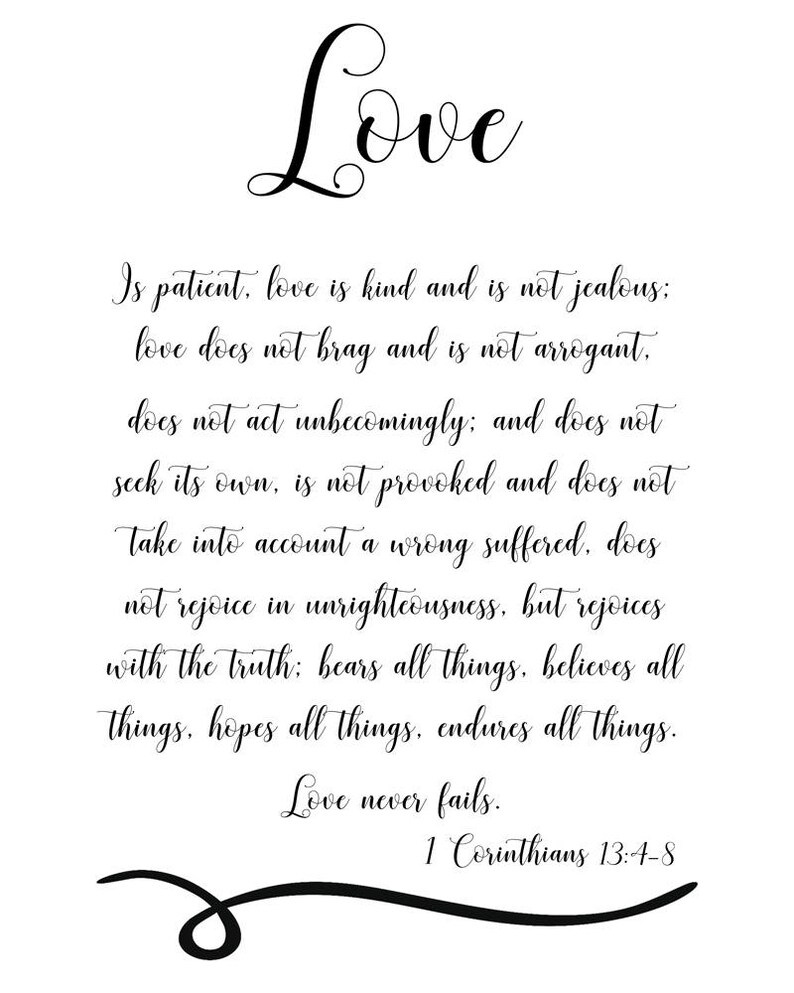 Love
Is patient, love is kind and is not jealous;
love does not brag and is not arrogant,
does not act unbecomingly; and does not
seek its own, is not provoked and does not
take into account a wrong suffered, does
not rejoice in unrighteousness, but rejoices
with the truth; bears all things, believes all
things, hopes all things, endures all things.
Love never fails.
1 Corinthians 13:4-8